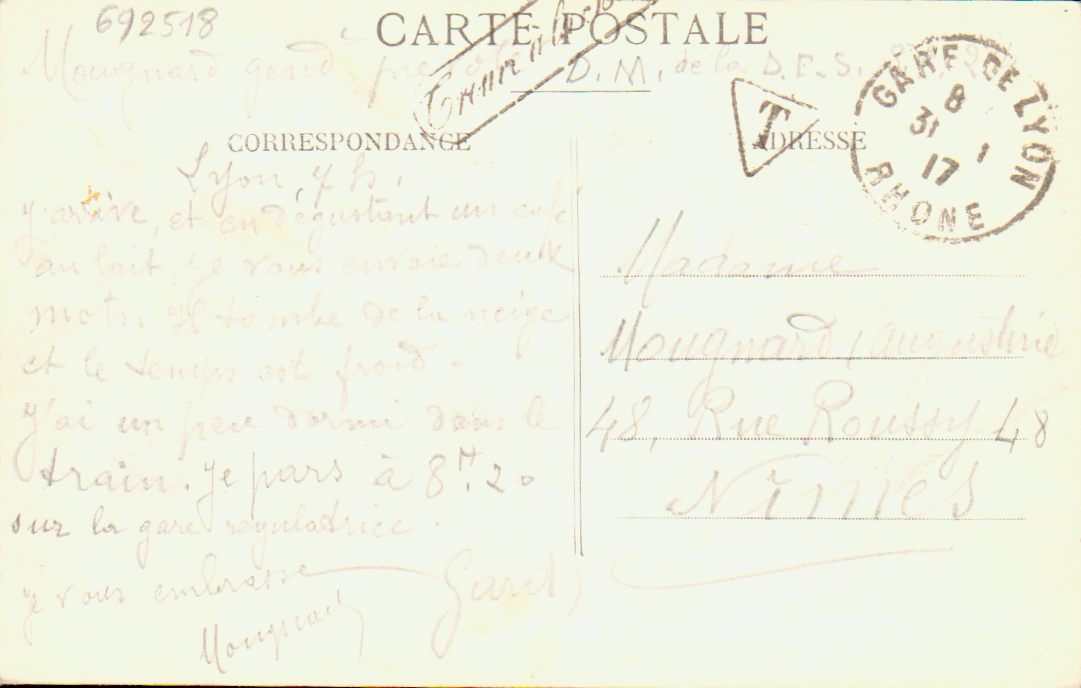 692518
CARTE POSTALE
Mougnard gend D.M. de la D.E.S.
T
GARE DE LYON
8
31 1
17
RHONE
CORRESPONDANCE
ADRESSE
Lyon, 7 h.
J'arrive, et en dégustant un café
au lait, je vous envoie deux
mots. Il tombe de la neige
et le temps est froid -
J'ai un peu dormi dans le
train. Je pars à 8H.20
sur la gare régulatrice.
Je vous embrasse
Mougnard
Madame
Mougnard Augustine
48, Rue Roussy 48
Nîmes
Gard)